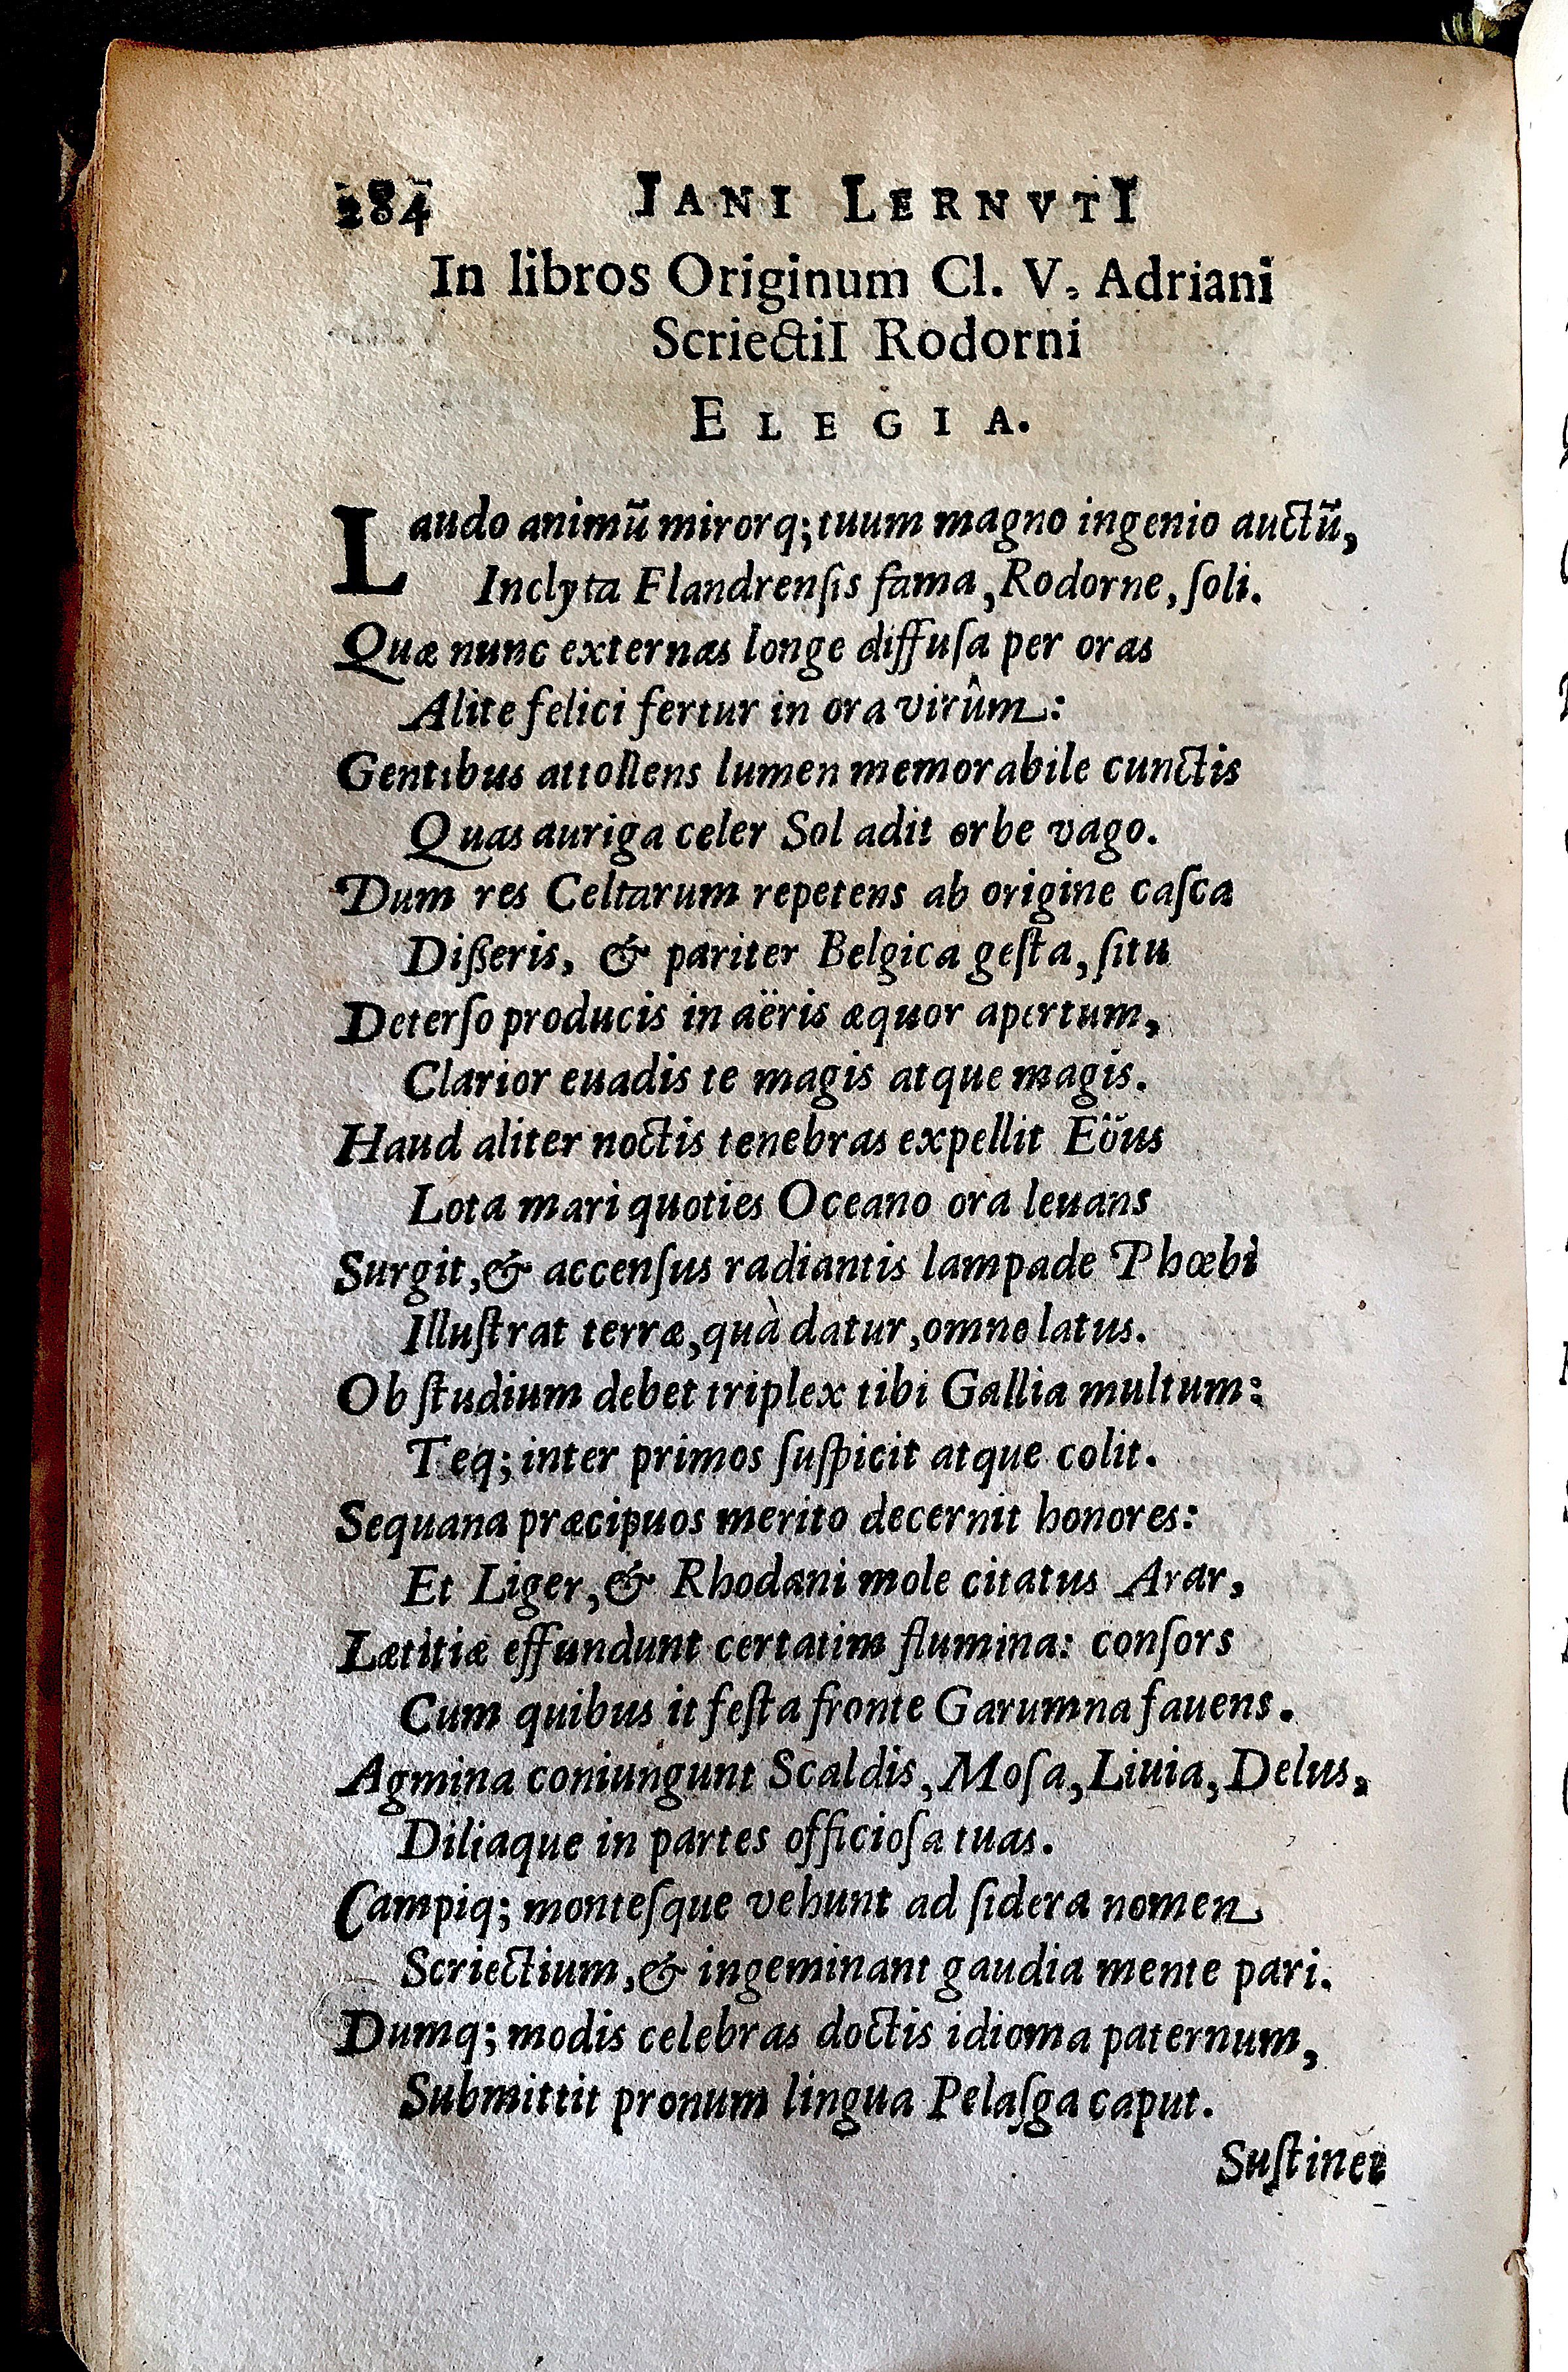 284 IANI LERNVTI
In libros Originum Cl. V. Adriani
ScriectiI Rodorni
ELEGIA.
Laudo animũ mirorq; tuum magno ingenio auctũ,
Inclyta Flandrenſis fama, Rodorne, ſoli.
Quæ nunc externas longe diffuſa per oras
Alite felici fertur in ora virûm:
Gentibus attollens lumen memorabile cunctis
Quas auriga celer Sol adit orbe vago.
Dum res Celtarum repetens ab origine caſca
Dißeris, & pariter Belgica geſta, ſitu
Deterſo producis in aëris æquor apertum,
Clarior euadis te magis atque magis.
Haud aliter noctis tenebras expellit Eöus
Lota mari quoties Oceano ora leuans
Surgit, & accenſus radiantis lampade Phœbi
Illuſtrat terræ, quà datur, omne latus.
Ob ſtudium debet triplex tibi Gallia multum:
Teq; inter primos ſuſpicit atque colit.
Sequana præcipuos merito decernit honores:
Et Liger, & Rhodani mole citatus Arar,
Lætitiæ effundunt certatim flumina: conſors
Cum quibus it feſta fronte Garumna fauens.
Agmina coniungunt Scaldis, Moſa, Liuia, Delus,
Diliaque in partes officioſa tuas.
Campiq; monteſque vehunt ad ſidera nomen
Scriectium, & ingeminant gaudia mente pari.
Dumq; modis celebras doctis idioma paternum,
Submittit pronum lingua Pelaſga caput.
Suſtinet